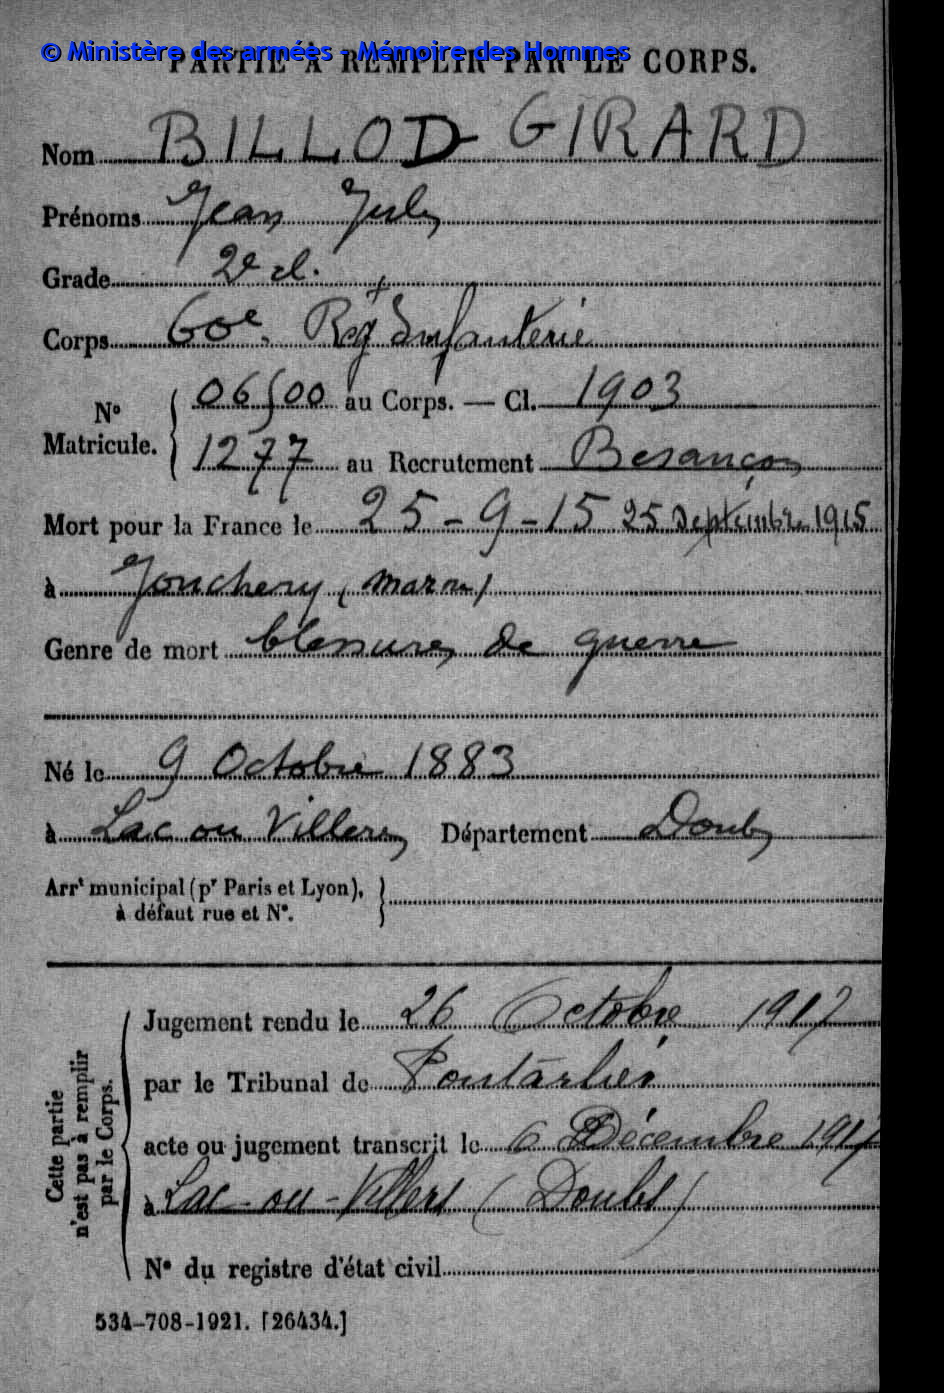 © Ministère des armées - Mémoire des Hommes
PARTIE À REMPLIR PAR LE CORPS.
Nom BILLOD GIRARD
Prénoms Jean Jules
Grade 2e cl.
Corps 60e Regt Infanterie
N° Matricule. 06500 au Corps. — Cl. 1903
1277 au Recrutement Besançon
Mort pour la France le 25-9-15 25 Septembre 1915
à Jonchery (Marne)
Genre de mort blessures de guerre
Né le 9 Octobre 1883
à Lac ou Villers Département Doubs
Arrt municipal (pr Paris et Lyon),
à défaut rue et N°.
Cette partie
n'est pas à remplir
par le Corps.
Jugement rendu le 26 Octobre 1917
par le Tribunal de Pontarlier
acte ou jugement transcrit le 6 Décembre 1917
à Lac-ou-Villers (Doubs)
N° du registre d'état civil
534-708-1921. [26434.]